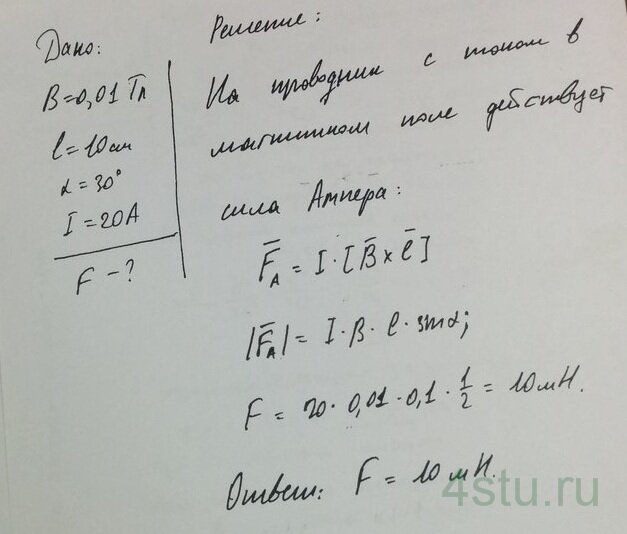 Дано:
B=0,01 Тл
l=10см
α=30°
I=20А
F-?
Решение:
На проводник с током в
магнитном поле действует
сила Ампера:
F̅_A = I·[B̅×l̅]
|F̅_A| = I·B·l·sinα;
F = 20·0,01·0,1·1/2 = 10мН.
Ответ: F = 10мН.
4stu.ru